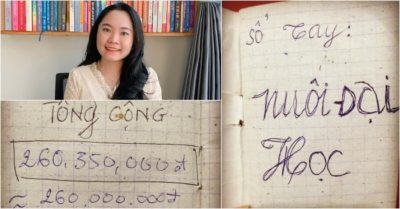 TỔNG CỘNG
260.350,000đ
≈ 260.000.000đ
Sổ Tay:
NUÔI ĐẠI
HỌC